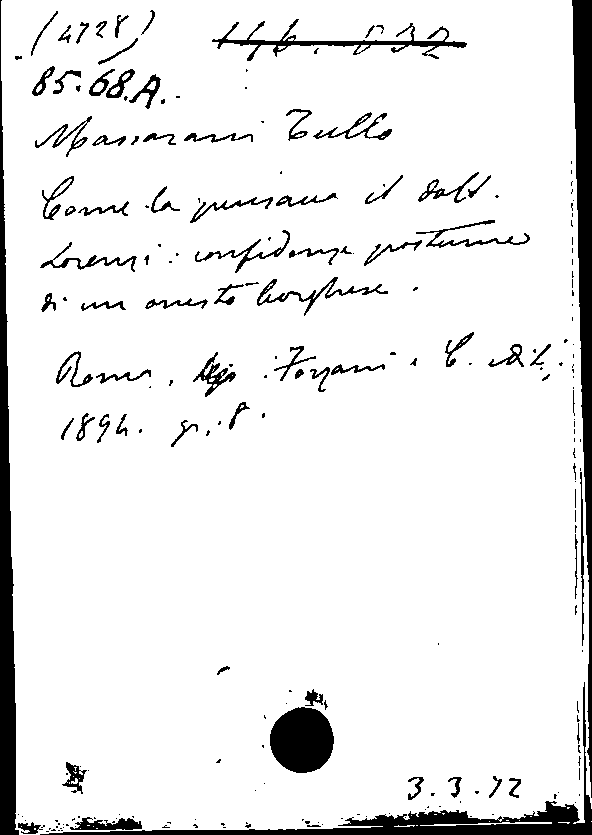 (4728)
85.68.A.
Massarani Tullo
Come la pensava il dott.
Lorenzi : confidenze postume
di un onesto borghese.
Roma, Forzani e C. Edit.,
1894. gr. 8.
3.3.72